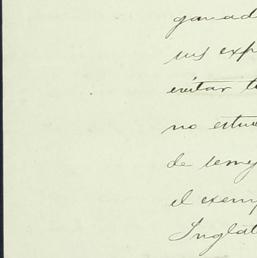 ganad
sus exp
evitar t
no estuv
de semej
el exemp
Inglat